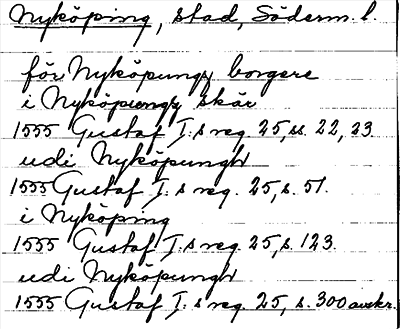 Nyköping, stad, Söderm. l.
för Nyköpungx borgere
i Nyköpungx skär
1555 Gustaf I:s reg. 25, ss. 22, 23
udi Nyköpungh
1555 Gustaf I:s reg. 25, s. 51.
i Nyköping
1555 Gustaf I:s reg. 25, s. 123
udi Nyköpungh
1555 Gustaf I:s reg. 25, s. 300 avskr.